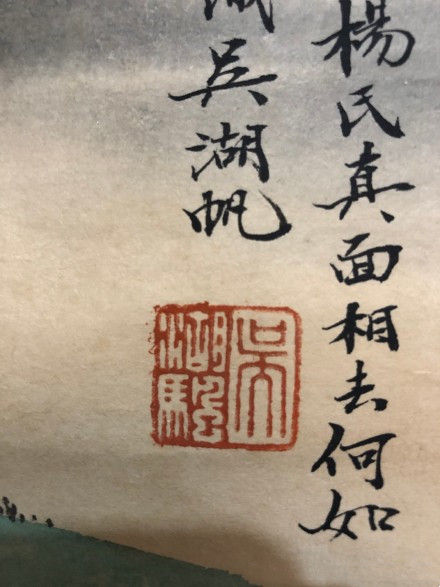 楊氏真面相去何如
吳湖帆
吳湖颿